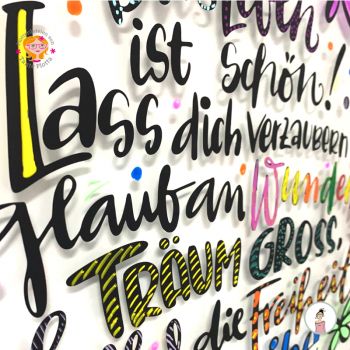 ist schön!
Lass dich verzaubern
glaub an Wunder
TRÄUM GROSS.
die Freiheit